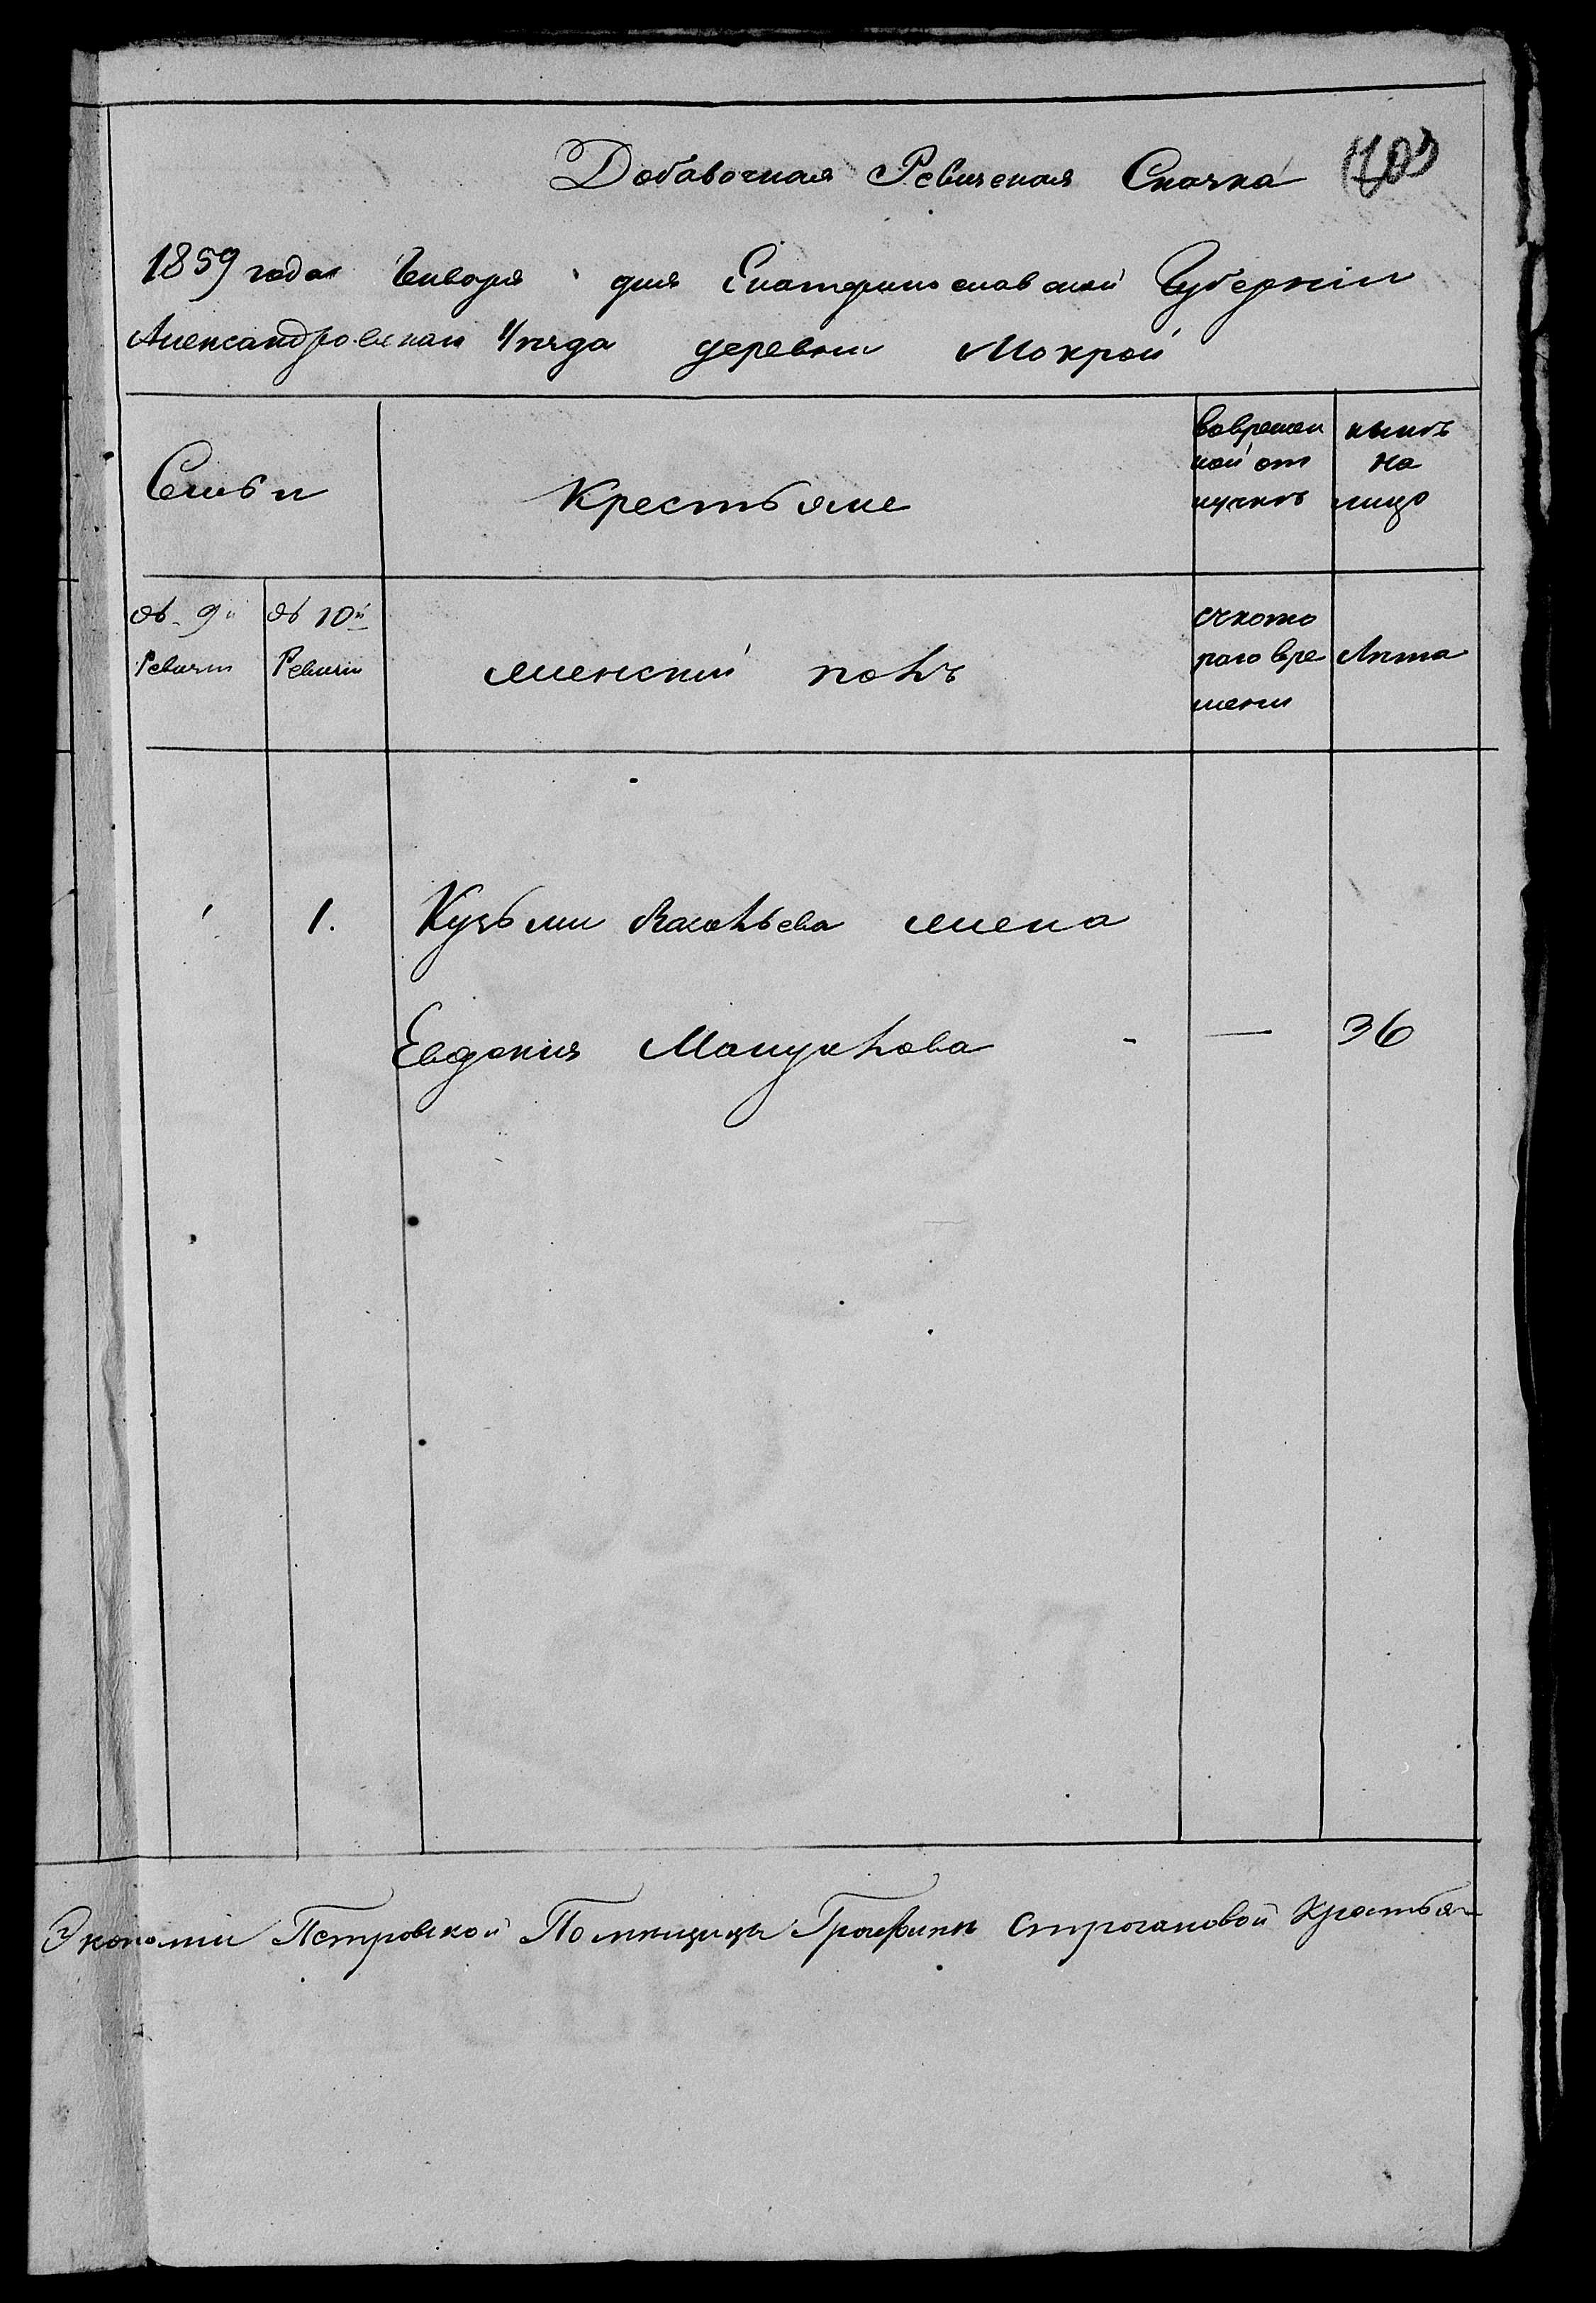 Добавочная Ревизская Сказка
1859 года Генваря дня Екатеринославской Губерніи
Александровскаго Уѣзда деревни Мокрой
Семьи
Крестьяне
вовремен
ной от
лучкѣ
нынѣ
на
лицо
По 9й
Ревизіи
По 10й
Ревизіи
женскій полъ
съкото
раго вре
мени
Лѣта
1. Кузьмы Васильева жена
Евдокия — 36
Экономіи Петровской Помѣщицы Графини Строгановой Крестьян